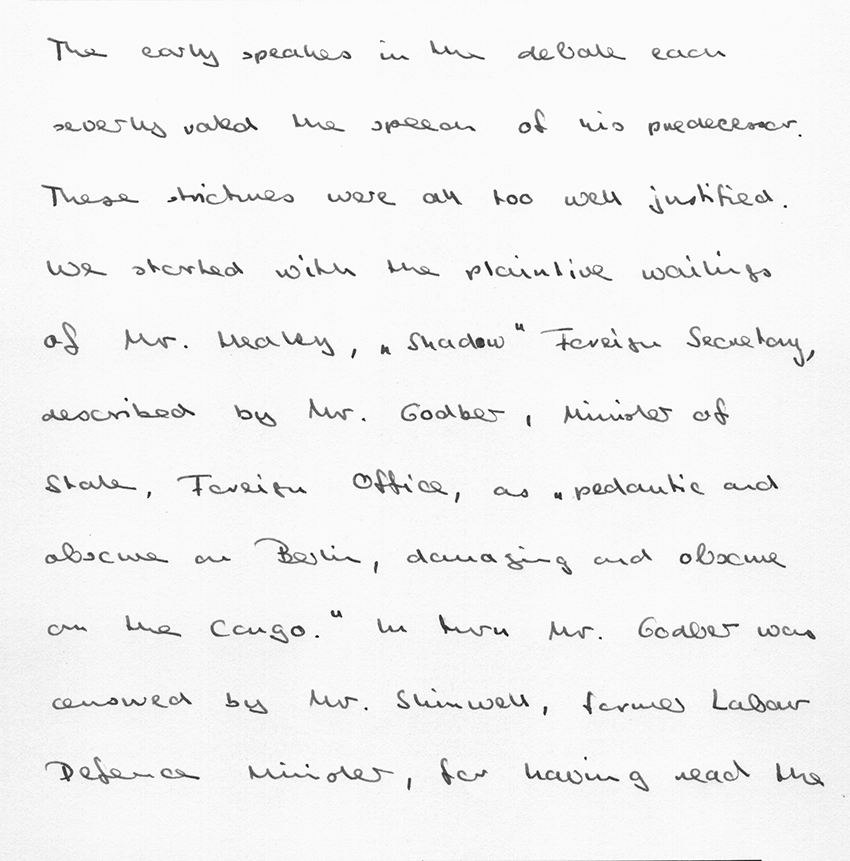 The early speakers in the debate each
severly rated the speech of his predecessor.
These strictures were all too well justified.
We started with the plaintive wailings
of Mr. Healey, „Shadow" Foreign Secretary,
described by Mr. Godber, Minister of
State, Foreign Office, as „pedantic and
obscure on Berlin, damaging and obscure
on the Congo." In turn Mr. Godber was
censured by Mr. Shinwell, former Labour
Defence Minister, for having read the